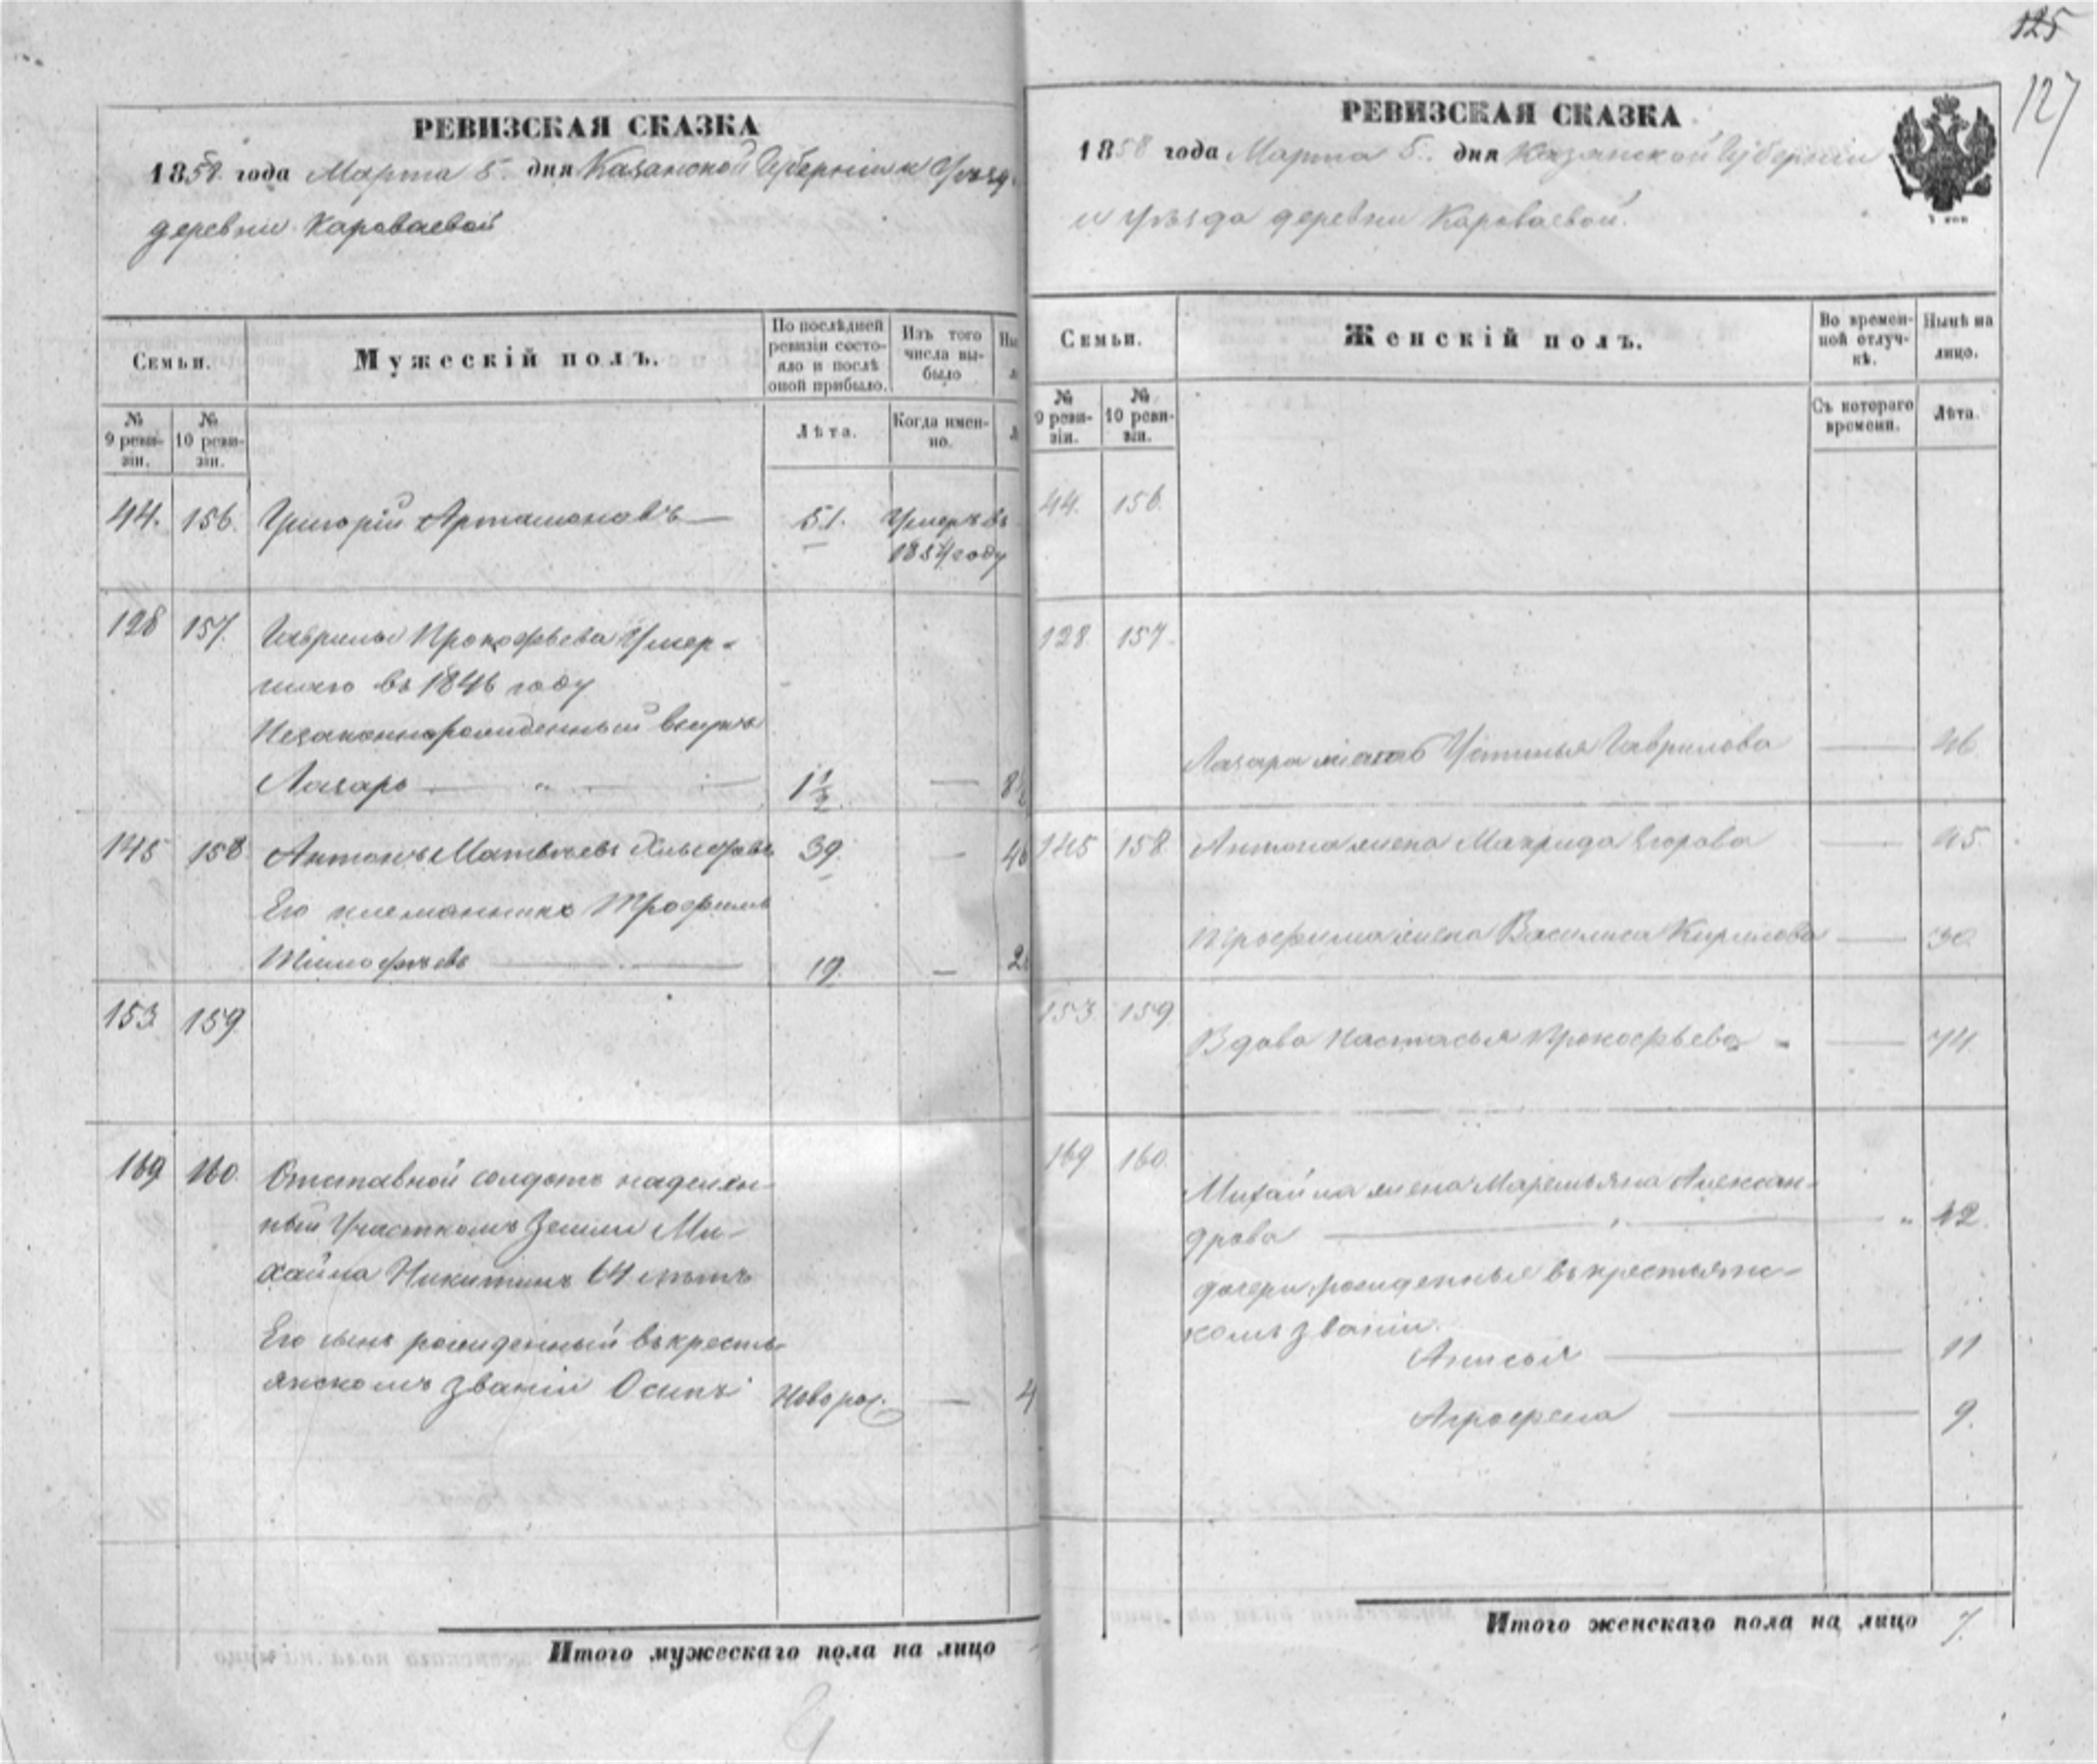 125
127
РЕВИЗСКАЯ СКАЗКА
1858 года Марта 5 дня Казанской Губерніи и Уѣзда
деревни Караваевой
Семьи.
Мужескій полъ.
По послѣдней ревизіи состояло и послѣ оной прибыло.
Изъ того числа выбыло
№ 9 ревизіи.
№ 10 ревизіи.
Лѣта.
Когда именно.
44. 156. Григорій Артамоновъ — 51. Умеръ въ
1854 году
128 157. Гаврилы Прокофьева Умер-
шаго въ 1846 году
Незаконнорожденный внукъ
Лазарь — 1 1/2 — 8 1/2
145 158 Антонъ Матвѣевъ 39. — 4
Его племянникъ Трофимъ
Тимофѣевъ — 19. — 2
153 159.
169 160. Отставной солдатъ надѣлен-
ный Участкомъ Земли Ми-
хайла Никитинъ 64 лѣтъ
Его сынъ рожденный въ кресть-
янскомъ званіи Осипъ Новорож. — 4
Итого мужескаго пола на лицо
РЕВИЗСКАЯ СКАЗКА
1858 года Марта 5. дня Казанской Губерніи
и Уѣзда деревни Караваевой.
Семьи.
Женскій полъ.
Во временной отлучкѣ.
Нынѣ на лицо.
№ 9 ревизіи.
№ 10 ревизіи.
Съ котораго времени.
Лѣта.
44. 156.
128. 157.
Лазаря мать Устинья Гаврилова — 46
145 158 Антона жена Макрида Егорова — 45.
Трофима жена Василиса Кирилова — 30
153. 159.
Вдова Настасья Прокофьева — 74.
169 160.
Михайла жена Маремьяна Алексан-
дрова — 42.
дочери рожденные въ крестьянс-
комъ званіи.
Анисья — 11
Агрофена — 9.
Итого женскаго пола на лицо 7.